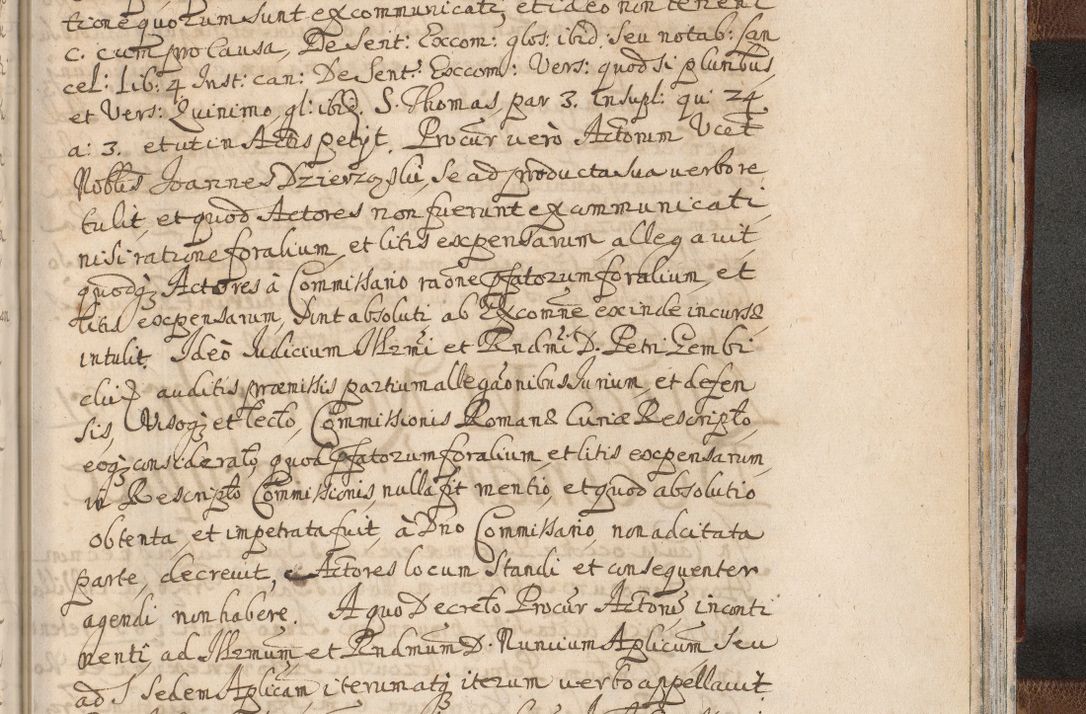 tione quorum sunt excommunicati, et ideo non tenent
c. cum pro causa, De Sent: Excom: glos: ibid: seu notab: Lan
cel: Lib: 4 Inst: can: De Sent: Excom: Vers: quod si pluribus,
et Vers: Quinimo, gl: ibid. S. Thomas, par 3. in supl: qu: 24
a: 3. et ut in Actis petijt. Procur verò Actorum Ucet
Nobilis Joannes Dzierzgski, se ad producta sua verbo re
tulit, et quod Actores non fuerunt excommunicati
nisi ratione foralium, et litis expensarum, allegavit
quodq Actores à Commissario raone pfatorum foralium, et
litis expensarum, sint absoluti ab Excomne exinde incursa
intulit. Ideò Judicium Illrmi et Rndmi D. Petri Gembi
cki auditis praemissis partium allegaonibus Jurium, et defen
sis, visoq et lecto, Commissionis Romanae Curiae Rescripto,
eoq considerato, quod pfatorum foralium, et litis expensarum,
in Rescripto Commissionis, nulla fit mentio, et quod absolutio
obtenta, et impetrata fuit, à Dno Commissario, non adcitata
parte, decrevit, Actores locum standi et consequenter
agendi non habere. A quo Decreto Procur Actorum inconti
nenti, ad Illrmum et Rndmum D. Nuncium Aplicum seu
ad S Sedem Aplicam iterum atq iterum verbo appellavit.